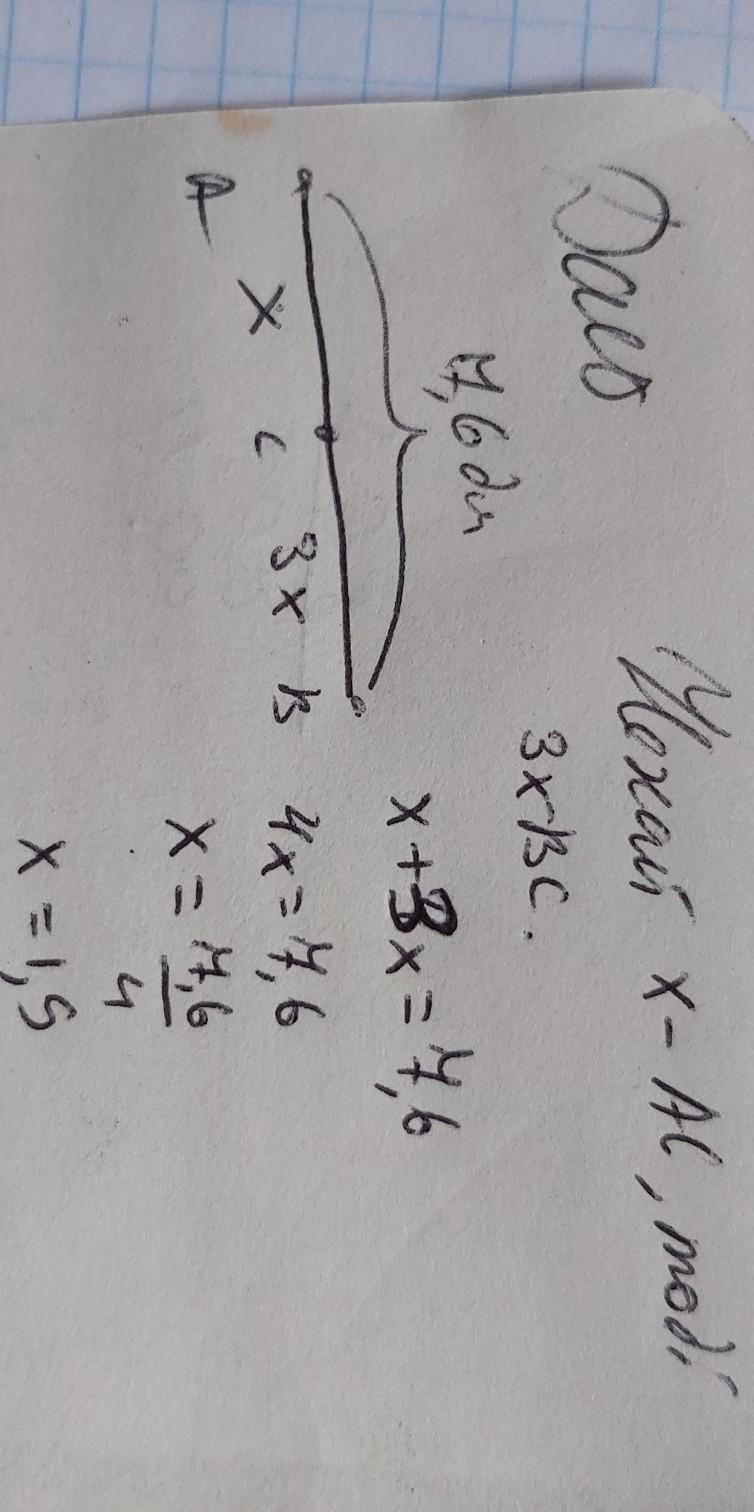 Дано
Нехай x - AC, тоді
3x BC.
7,6 дм
A x C 3x B
x + 3x = 7,6
4x = 7,6
x = 7,6
4
x = 1,9